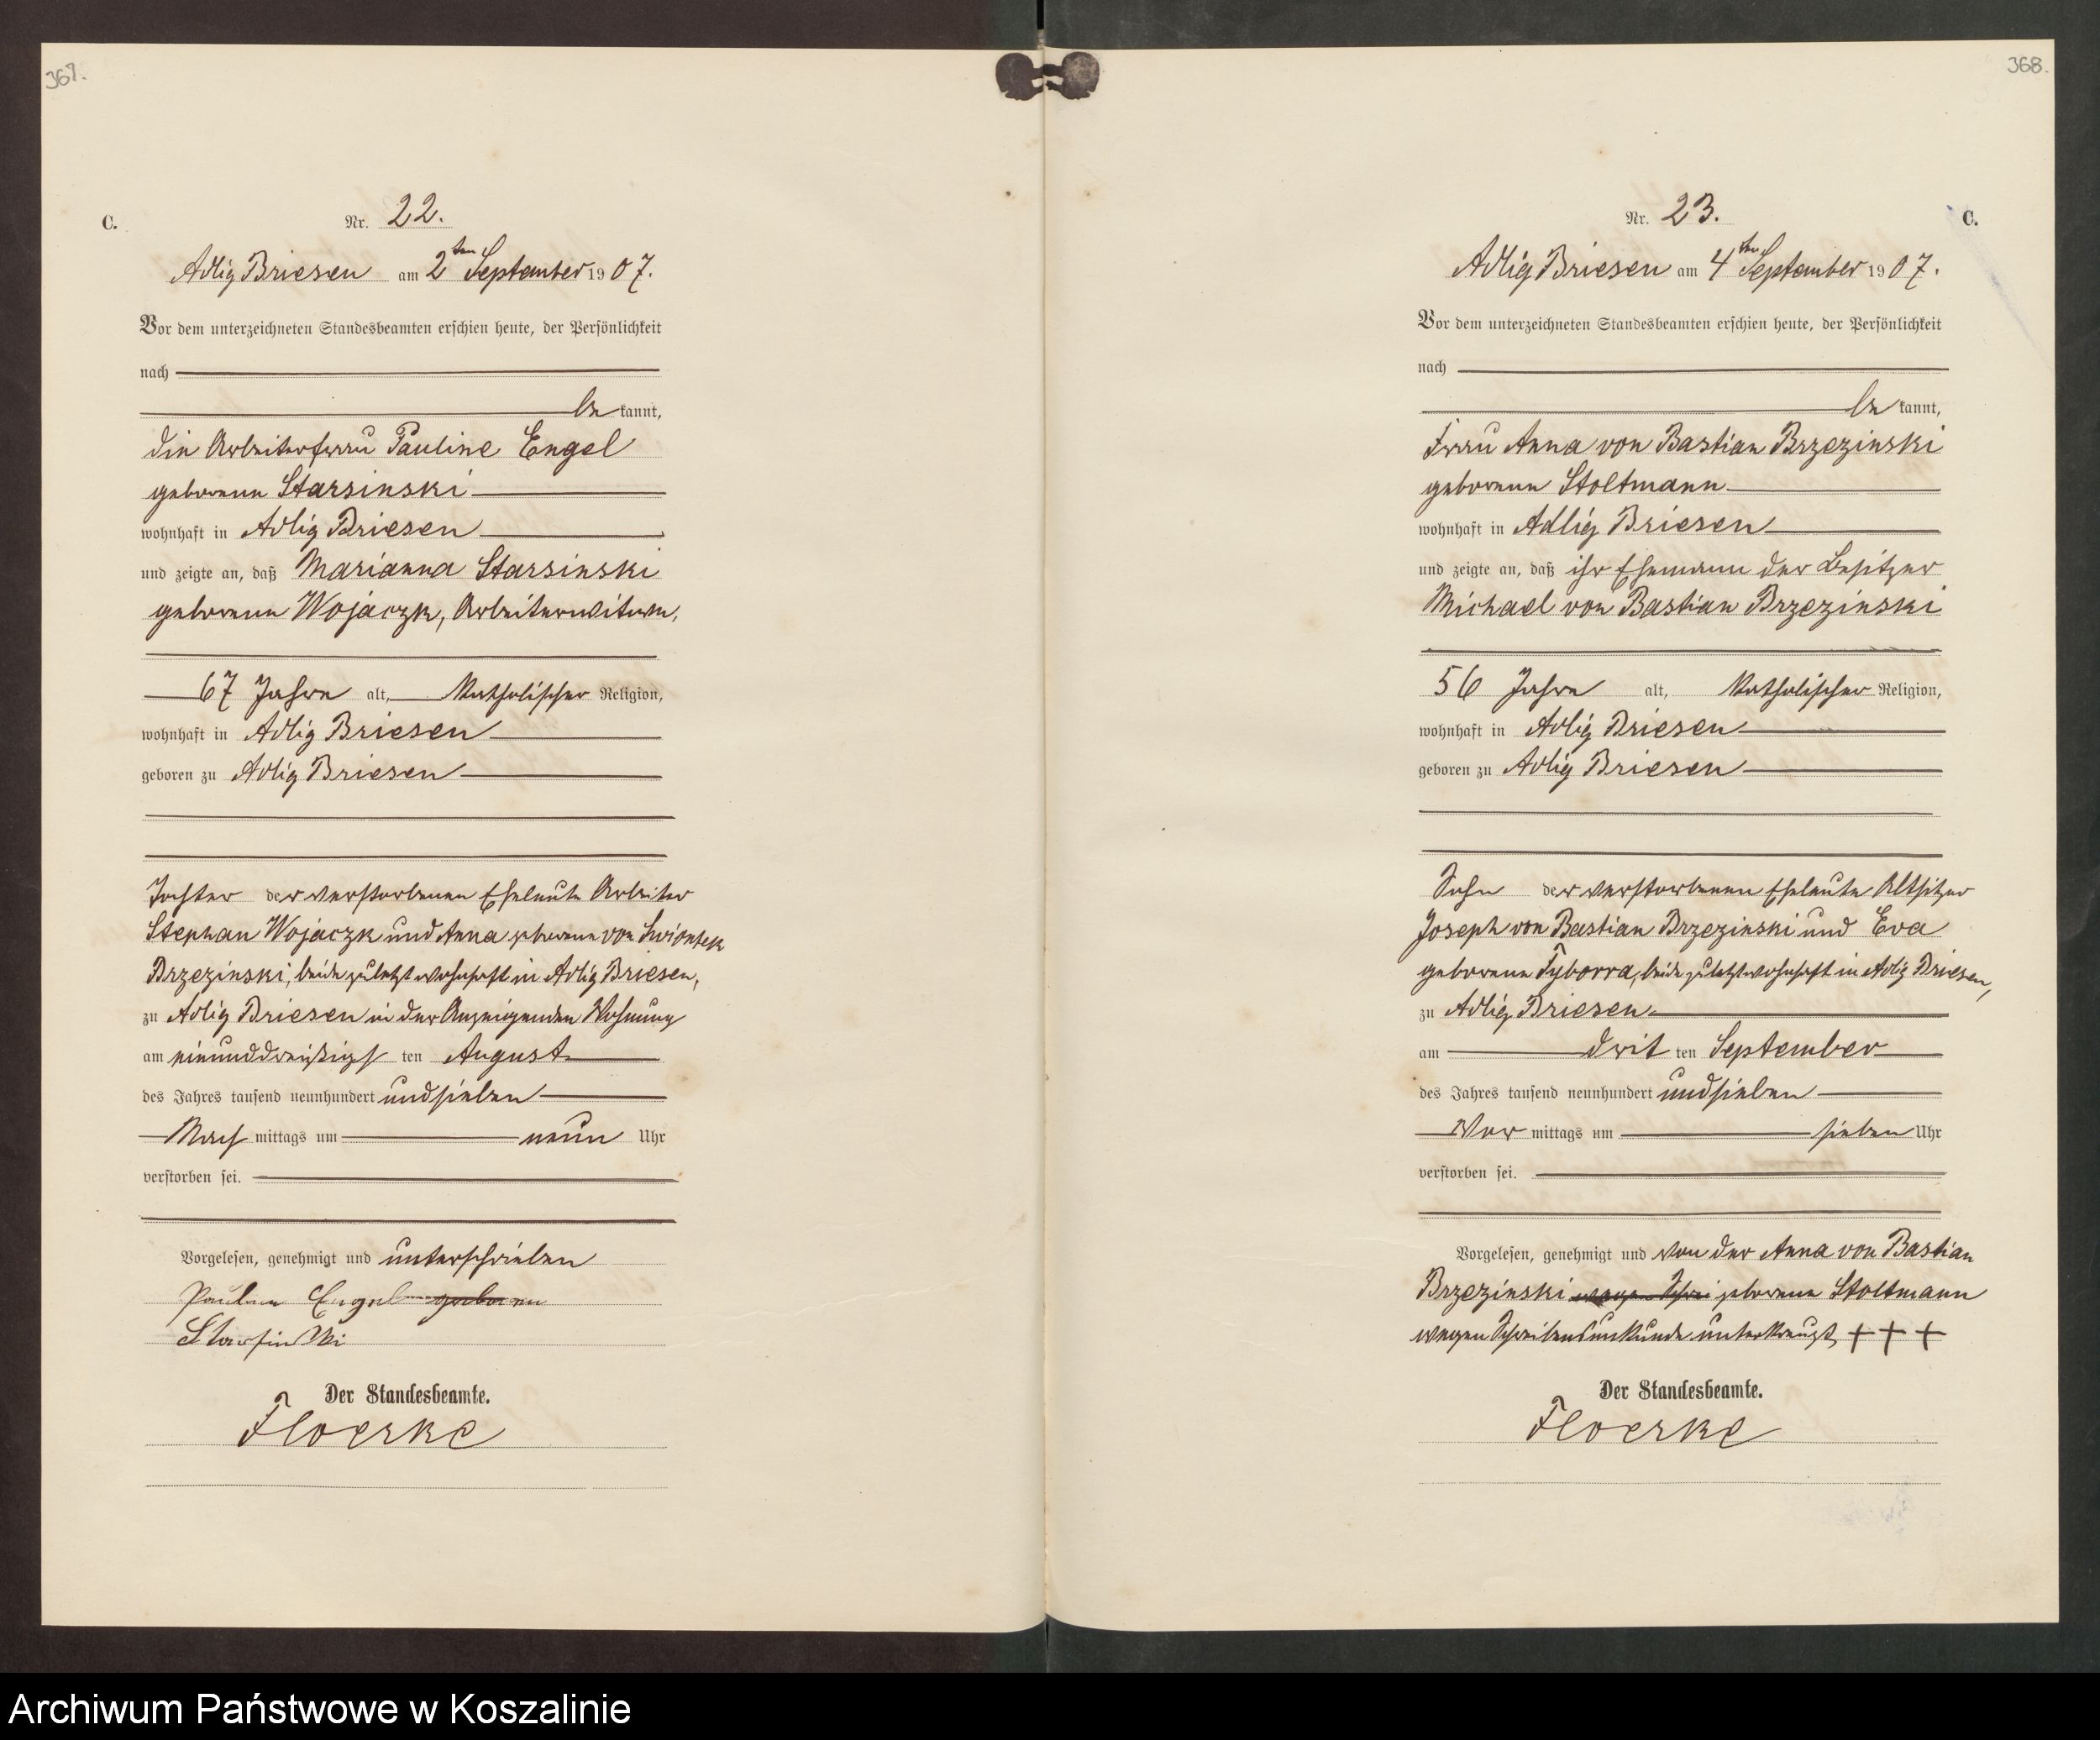 367.
C.
Nr. 22.
Adlig Briesen am 2ten September 1907.
Vor dem unterzeichneten Standesbeamten erschien heute, der Persönlichkeit
nach
be kannt,
die Arbeiterfrau Pauline Engel
geborene Starsinski
wohnhaft in Adlig Briesen
und zeigte an, daß Marianna Starsinski
geborene Wojaczk, Arbeiterwitwe,
67 Jahre alt, katholischer Religion,
wohnhaft in Adlig Briesen
geboren zu Adlig Briesen
Tochter der verstorbenen Eheleute Arbeiter
Stephan Wojaczk und Anna geborene von Swiontek
Brzezinski, beide zuletzt wohnhaft in Adlig Briesen,
zu Adlig Briesen in der Anzeigenden Wohnung
am einunddreißigst ten August
des Jahres tausend neunhundert und sieben
Nach mittags um neun Uhr
verstorben sei.
Vorgelesen, genehmigt und unterschrieben
Pauline Engel geboren
Starsinski
Der Standesbeamte.
Floerke
368.
C.
Nr. 23.
Adlig Briesen am 4ten September 1907.
Vor dem unterzeichneten Standesbeamten erschien heute, der Persönlichkeit
nach
be kannt,
Frau Anna von Bastian Brzezinski
geborene Stoltmann
wohnhaft in Adlig Briesen
und zeigte an, daß ihr Ehemann der Besitzer
Michael von Bastian Brzezinski
56 Jahre alt, katholischer Religion,
wohnhaft in Adlig Briesen
geboren zu Adlig Briesen
Sohn der verstorbenen Eheleute Altsitzer
Joseph von Bastian Brzezinski und Eva
geborene Tyborra, beide zuletzt wohnhaft in Adlig Briesen,
zu Adlig Briesen
am drit ten September
des Jahres tausend neunhundert und sieben
Vor mittags um sieben Uhr
verstorben sei.
Vorgelesen, genehmigt und von der Anna von Bastian
Brzezinski wegen Schrei geborene Stoltmann
wegen Schreibensunkunde unterkreuzt, + + +
Der Standesbeamte.
Floerke
Archiwum Państwowe w Koszalinie